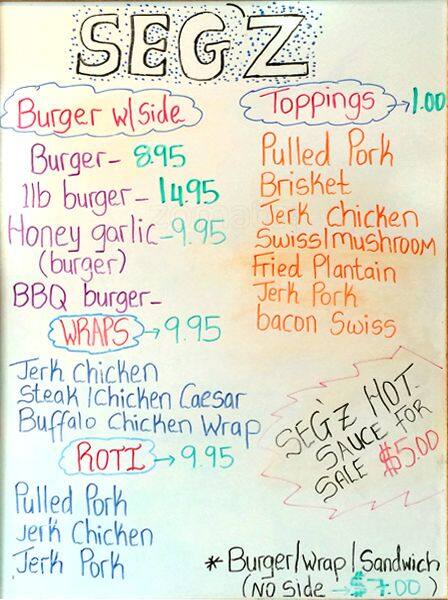 SEG'Z
Burger w/side
Burger- 8.95
1lb burger- 14.95
Honey garlic-9.95
(burger)
BBQ burger-
WRAPS → 9.95
Jerk chicken
Steak/Chicken Caesar
Buffalo Chicken Wrap
ROTI → 9.95
Pulled Pork
Jerk Chicken
Jerk Pork
Toppings → 1.00
Pulled Pork
Brisket
Jerk Chicken
Swiss/mushroom
Fried Plantain
Jerk Pork
bacon Swiss
SEG'Z HOT
SAUCE FOR
SALE $5.00
* Burger/Wrap/Sandwich
(NO Side → $7.00)